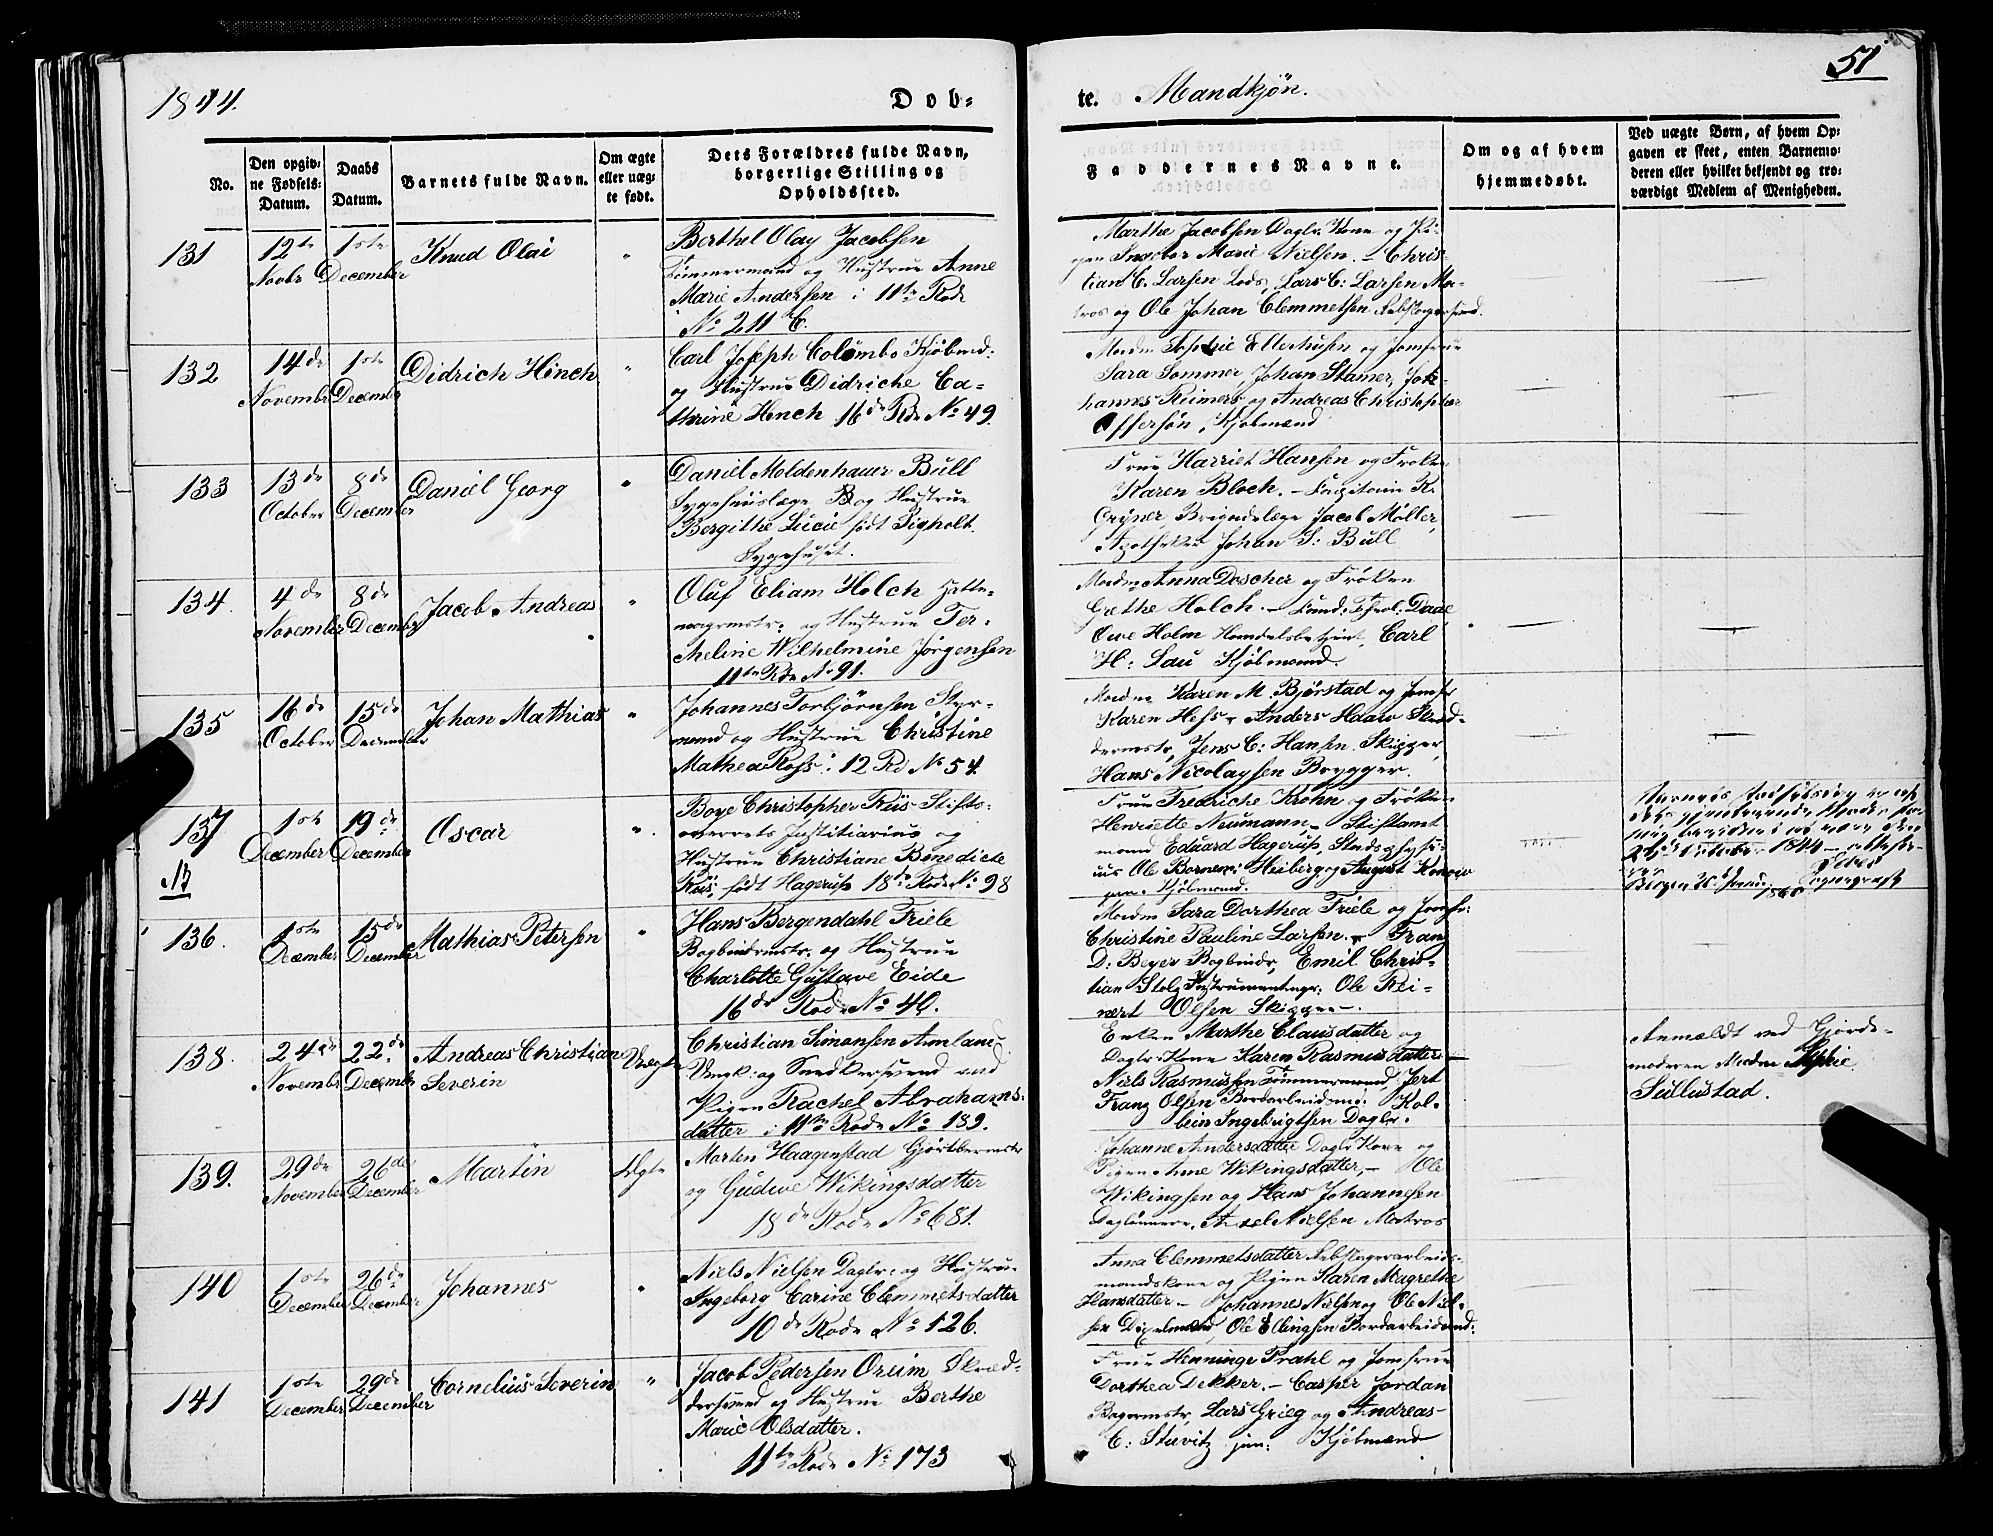 1844.
Dob-
te. Mandkjøn.
51
No.
Den opgiv-
ne Fødsels-
Datum.
Daabs
Datum.
Barnets fulde Navn.
Om ægte
eller uæg-
te født.
Dets Forældres fulde Navn,
borgerlige Stilling og
Opholdssted.
Faddernes Navne.
Om og af hvem
hjemmedøbt.
Ved uægte Børn, af hvem Op-
gaven er skeet, enten Barnemo-
deren eller hvilket bekjendt og tro-
værdigt Medlem af Menigheden.
131
12te
Novbr
1ste
December
Knud Olai
"
Berthel Olay Jacobsen
Tømmermand og Hustrue Anne
Marie Andersen i 11te Rode
No 211 C.
Marthe Jacobsen Daglr. Kone og Pi-
gen Ingebor Marie Nielsen. - Chris-
tian C. Larsen Lods, Lars C: Larsen Ma-
tros og Ole Johan Clemmetsen Rebslagersvend.
132
14de
Novembr
1ste
Decembr
Didrich Hinch
"
Carl Joseph Colombo Kjøbmd:
og Hustrue Didriche Ca-
thrine Hench 16de Rde No 49.
Madm Sophie Ellerhusen og Jomfrue
Sara Sommer, Johan Stamer, Joh-
hannes Reimers og Andreas Christopher
Offersøn, Kjøbmænd
133
13de
October
8de
December
Daniel Georg
"
Daniel Moldenhauer Bull
Sygehuuslæge og Hustrue
Bergithe Lucie født Sigholt.
Sygehuset.
Frue Harriet Hansen og Frøken
Karen Bloch. - Capitain R.
Gryner, Brigadelæge Jacob Møller,
Apotheker Johan S: Bull
134.
4de
November
8de
Decembr
Jacob Andreas
"
Oluf Eliam Holch Hatte-
magermstr: og Hustrue Ter-
Meline Wilhelmine Jørgensen
11te Rde No 91.
Madm Anna Doscher og Frøken
Grethe Holch. - Cand: Theol: Daae
Owe Holm Handelsbetjent, Carl
H: Lau Kjøbmand.
135
16de
October
15de
December
Johan Mathias
"
Johannes Torbjørnsen Styr-
mand og Hustrue Christine
Mathea Ross i 12 Rd No 54.
Madme Karen M. Bjørstad og Jomfr
Karen Hess. Anders Haarv Skræd-
dermstr, Jens C: Hansen Skipper,
Hans Nicolaysen Brygger.
137
NB
1ste
December
19de
December
Oscar
"
Boye Christopher Riis Stifts-
overrets Justitiarius og
Hustrue Christiane Benedicte
Riis, født Hagerup 18de Rode No 98
Frue Fredriche Krohn og Frøken
Henriette Neumann, Stiftamt
mand Eduard Hagerup, Stadsphysi-
cus Ole Bornem: Heiberg og August Konow
jun. Kjøbmand.
1844
Bergen
136.
1ste
December
15de
December
Mathias Petersen
"
Hans Bergendahl Friele
Bogbindermstr: og Hustrue
Charlotte Gustave Eide
16de Rode No 40.
Madm Sara Dorthea Friele og Jomfr:
Christine Pauline Larsen. Franz
D: Beyer Bogbinder, Emil Chris-
tian Stolz Instrumentmgr: Ole Rei-
nert Olsen Skipper.
138.
24de
Novembr
22de
Decembr
Andreas Christian
Severin
Uægte
Christian Simonsen Aamland
Ungk: og Snedkersvend med
Pigen Rachel Abrahams-
datter i 11te Rode No 189.
Enken Marthe Clausdatter og
Daglr: Kone Karen Rasmusdatter
Niels Rasmussen Tømmermand
Franz Olsen Bordarbeidsmd: Kol-
bein Ingebrigtsen Daglr.
Anmeldt ved Gjorde-
moderen Madme Sophie
Sellustad.
139.
29de
November
26de
December
Martin
Ægte
Morten Haagenstad Gjørtlermstr
og Gudve Wikingsdatter
18de Rode No 681.
Johanne Andersdatter Daglr Kone og
Pigen Anne Wikingsdatter. - Ole
Wikingsen og Hans Johannesen
Daglønnere, Axel Nielsen Matros
140
1ste
December
26de
December
Johannes
"
Niels Nielsen Daglr: og Hustrue
Ingeborg Carine Clemmetsdatter
10de Rode No 126.
Anna Clemmetsdatter Rebslagerarbeids-
mandskone og Pigen Karen Magrethe
Hansdatter - Johannes Nielsen og Ole Niel-
sen, Ole Ellingsen Bordarbeidsmd:
141
1ste
December
29de
December
Cornelius Severin
"
Jacob Pedersen Oreim Skræd-
dersvend og Hustrue Berthe
Marie Olsdatter.
11te Rode No 173
Frue Henninge Prahl og Jomfrue
Dorthea Dekker. - Casper Jordan
Bagermstr, Lars Grieg og Andreas
C: Stuvitz jun: Kjøbmænd